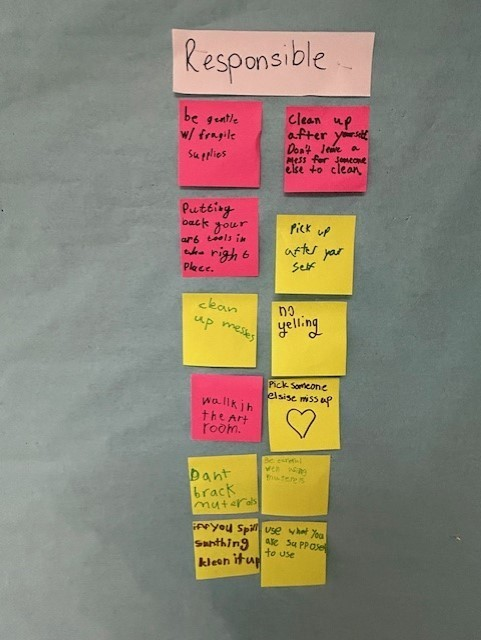 Responsible
be gentle
w/ fragile
supplies
Clean up
after yourself
Don't leave a
mess for someone
else to clean
Putting
back your
art tools in
right
Place.
Pick up
after your
self
clean
up messes
no
yelling
walk in
the Art
room.
Pick someone
elsise miss up
Dant
brack
muterols
iff you spill
sumthing
kleen it up
use what you
are supposet
to use